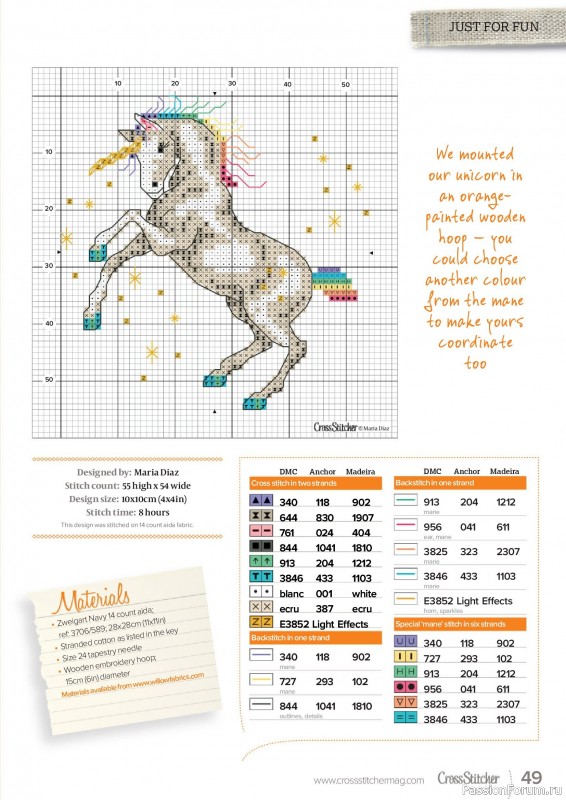 JUST FOR FUN
10 20 30 40 50
10
20
30
40
50
CrossStitcher © Maria Diaz
We mounted
our unicorn in
an orange-
painted wooden
hoop – you
could choose
another colour
from the mane
to make yours
coordinate
too
Designed by: Maria Diaz
Stitch count: 55 high x 54 wide
Design size: 10x10cm (4x4in)
Stitch time: 8 hours
This design was stitched on 14 count aida fabric.
Materials
• Zweigart Navy 14 count aida;
ref: 3706/589; 28x28cm (11x11in)
• Stranded cotton as listed in the key
• Size 24 tapestry needle
• Wooden embroidery hoop;
15cm (6in) diameter
Materials available from www.willowfabrics.com
DMC Anchor Madeira
Cross stitch in two strands
340 118 902
644 830 1907
761 024 404
844 1041 1810
913 204 1212
3846 433 1103
blanc 001 white
ecru 387 ecru
E3852 Light Effects
Backstitch in one strand
340 118 902
mane
727 293 102
mane
844 1041 1810
outlines, details
DMC Anchor Madeira
Backstitch in one strand
913 204 1212
mane
956 041 611
ear, mane
3825 323 2307
mane
3846 433 1103
mane
E3852 Light Effects
horn, sparkles
Special 'mane' stitch in six strands
340 118 902
727 293 102
913 204 1212
956 041 611
3825 323 2307
3846 433 1103
www.crossstitchermag.com CrossStitcher 49
PassionForum.ru